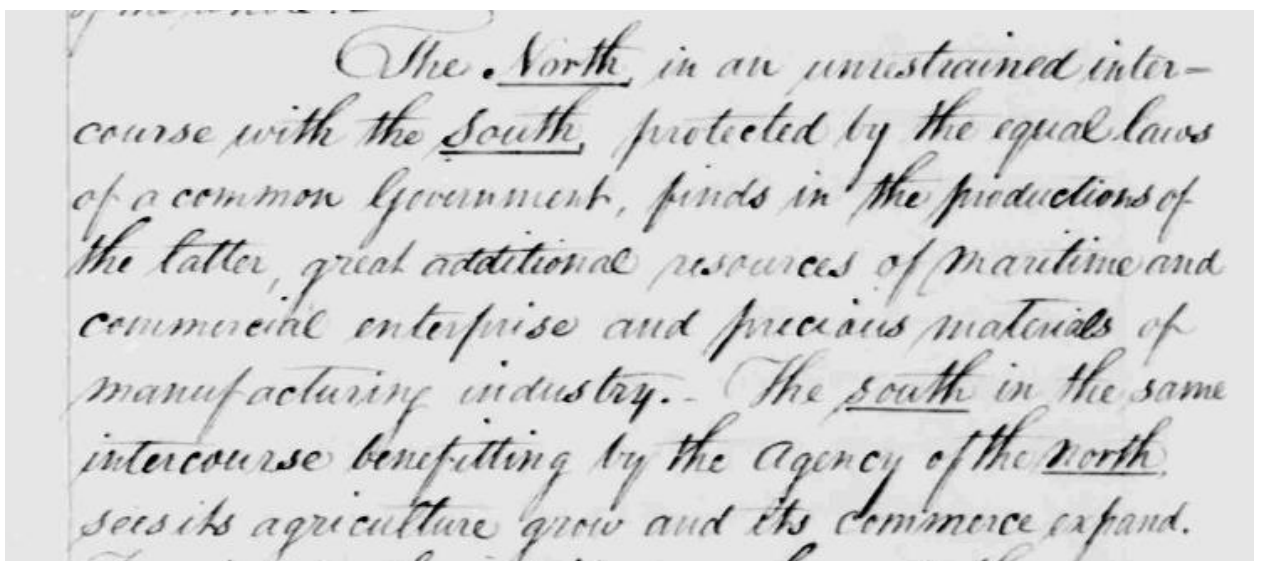 of the whole
The North, in an unrestrained inter-
course with the South, protected by the equal laws
of a common Government, finds in the productions of
the latter, great additional resources of maritime and
commercial enterprise and precious materials of
manufacturing industry.- The south in the same
intercourse benefitting by the agency of the north,
sees its agriculture grow and its commerce expand.